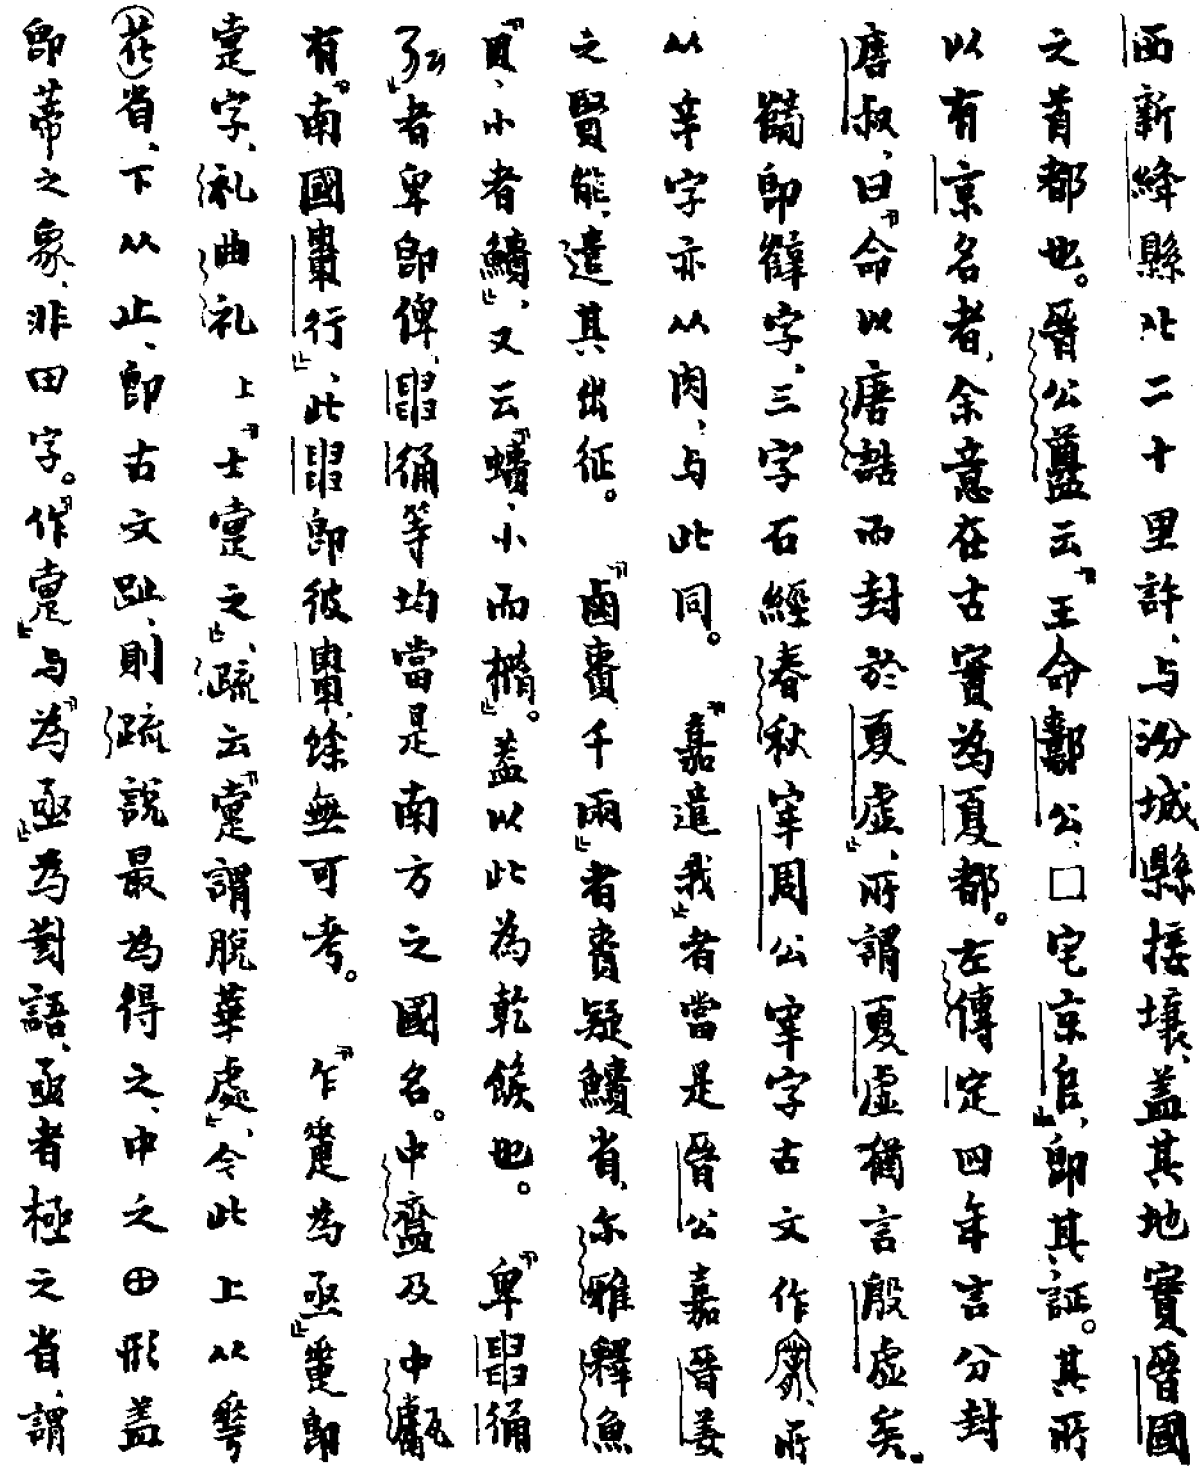 西新絳縣北二十里許、与汾城縣接壤、蓋其地實晉國
之首都也。晉公𥂴云「王命鄙公、□宅京𠂤」、即其証。其所
以有京名者、余意在古實為夏都。左傳定四年言分封
唐叔、曰「命以唐誥而封於夏虛」、所謂夏虛猶言殷虛矣。
即字、三字石經春秋宰周公宰字古文作、所
从辛字亦从肉、与此同。「嘉遣我」者當是晉公嘉晉姜
之賢能、遣其出征。「鹵賚千兩」者賚疑鱝省、尔雅釋魚
「貝、小者鰿」、又云「蟦、小而橢」。蓋以此為乾餱也。「卑䎽俑
云」者卑即俾、䎽俑等均當是南方之國名。中齍及中甗
有「南國行」、此即彼、餘無可考。「乍疐為亟」疐即
疐字、礼曲礼上「士疐之」、疏云「疐謂脫華處」、今此上从𠌶
(花)省、下从止、即古文趾、則疏說最為得之、中之⊕形蓋
即蒂之象、非田字。「作疐」与「為亟」為對語、亟者極之省、謂